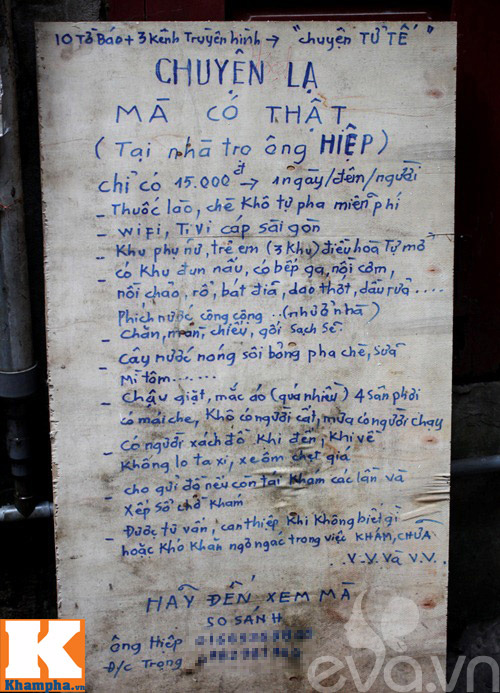 10 Tờ Báo + 3 Kênh Truyền hình → "chuyện TỬ TẾ"
CHUYỆN LẠ
MÀ CÓ THẬT
(Tại nhà trọ ông HIỆP)
chỉ có 15.000đ → 1 ngày/đêm/người
- Thuốc lào, chè Khô tự pha miễn phí
- wifi, Ti vi cáp sài gòn
- Khu phụ nữ, trẻ em (3 khu) điều hoà Tự mở
- có Khu đun nấu, có bếp ga, nồi cơm,
nồi chảo, rổ, bát đĩa, dao thớt, dầu rửa .....
Phích nước công cộng ..(như ở nhà)
- Chăn, màn, chiếu, gối sạch sẽ.
- Cây nước nóng sôi bỏng pha chè, sữa
mì tôm.......
- Chậu giặt, mắc áo (quá nhiều) 4 sân phơi
có mái che, Khô có người cất, mưa có người chạy
- Có người xách đồ Khi đến, Khi về
Không lo ta xi, xe ôm chẹt giá
- cho gửi đồ nếu còn tái Khám các lần và
Xếp sổ chờ Khám
- Được tư vấn, can thiệp Khi Không biết gì
hoặc Khó Khăn ngơ ngác trong việc KHÁM, CHỮA
.V.V. Và V.V..
HÃY ĐẾN XEM MÀ
SO SÁNH
ông Hiệp
Đ/c Trọng
K
Khampha.vn
eva.vn